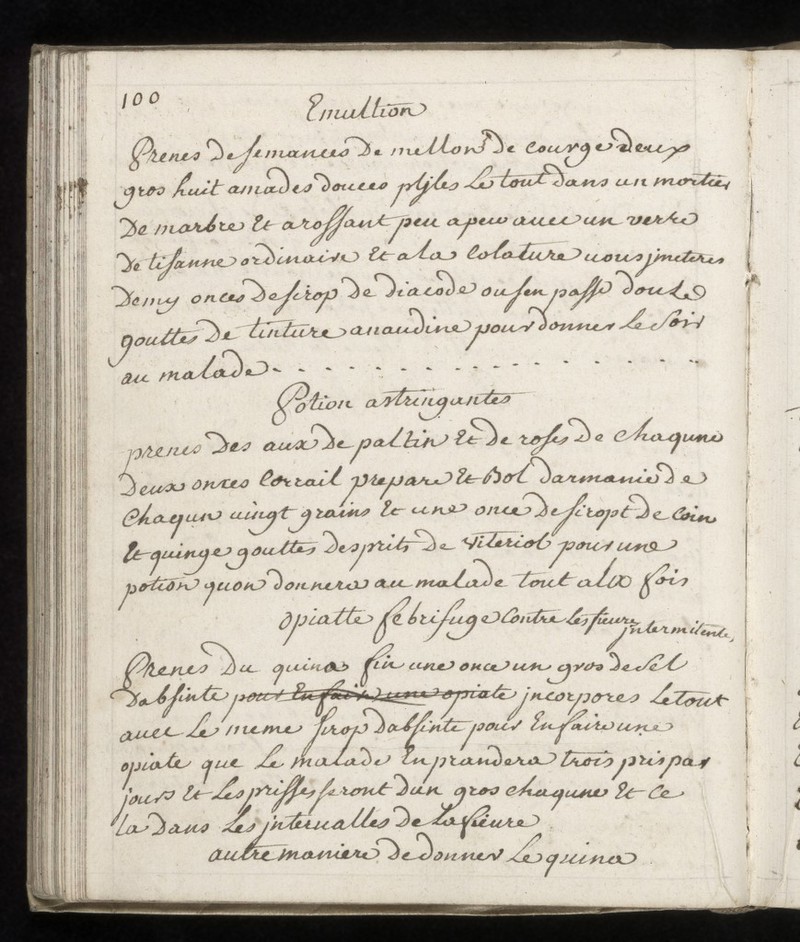 100
Emultion
Prenes de semances de mellons de courge deux
gros huit amades douces pljles Le tout dans un mortier
De marbre Et arossant peu apeu avec un verre
De tisanne ordinaire Et a la Colature vous jmeteres
Demy onces De sirop De diacode ou sen passe douze
gouttes De tinture anaudine pour donner Le Soir
au malade - - - - - - - - - - - - - - -
Potion astringantes
prenes Des aux De paltin Et De roses De Chaqune
Deux onces Corrail prepare Et Bol darmanie De
Chaqun vingt grains Et une once De siropt De Coin
Et quinze gouttes Desprits De viteriol pour une
potion quon donnera au malade tout alla fois
Opiatte febrifuge Contre Les fieure jntermitente,
Prenes Du quina fin une once un gros de Sel
Dabsinte pour En faire une opiate jncorpores Le tout
avec Le meme sirop Dabsinte pour En faire une
opiate que Le malade En prandera trois pris par
jours Et Les prisses seront Dun gros chaqune Et Ce
la Dans Les jntervalles De La fieure
autre maniere De donner Le quina